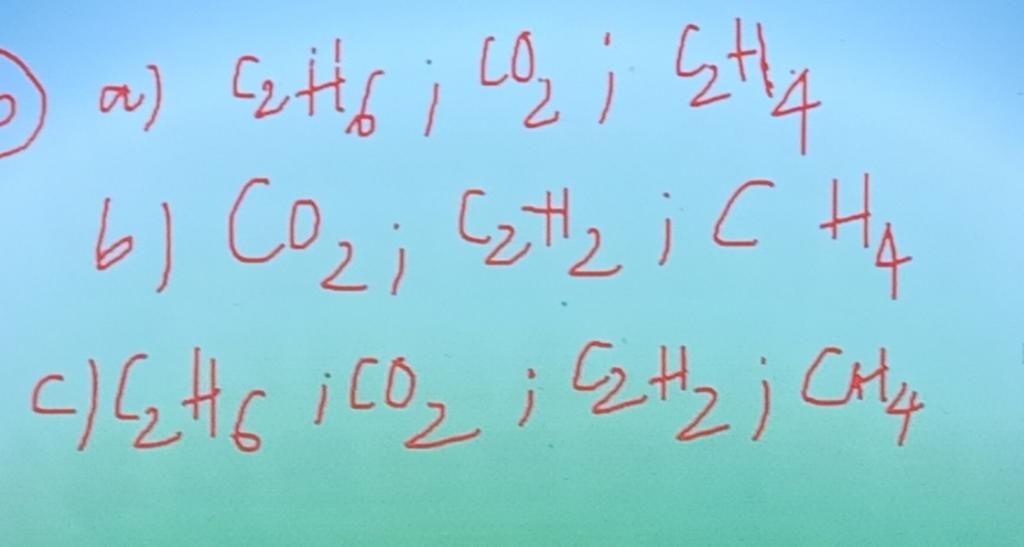 a) C₂H₆ ; CO₂ ; C₂H₄
b) CO₂ ; C₂H₂ ; CH₄
c) C₂H₆ ; CO₂ ; C₂H₂ ; CH₄